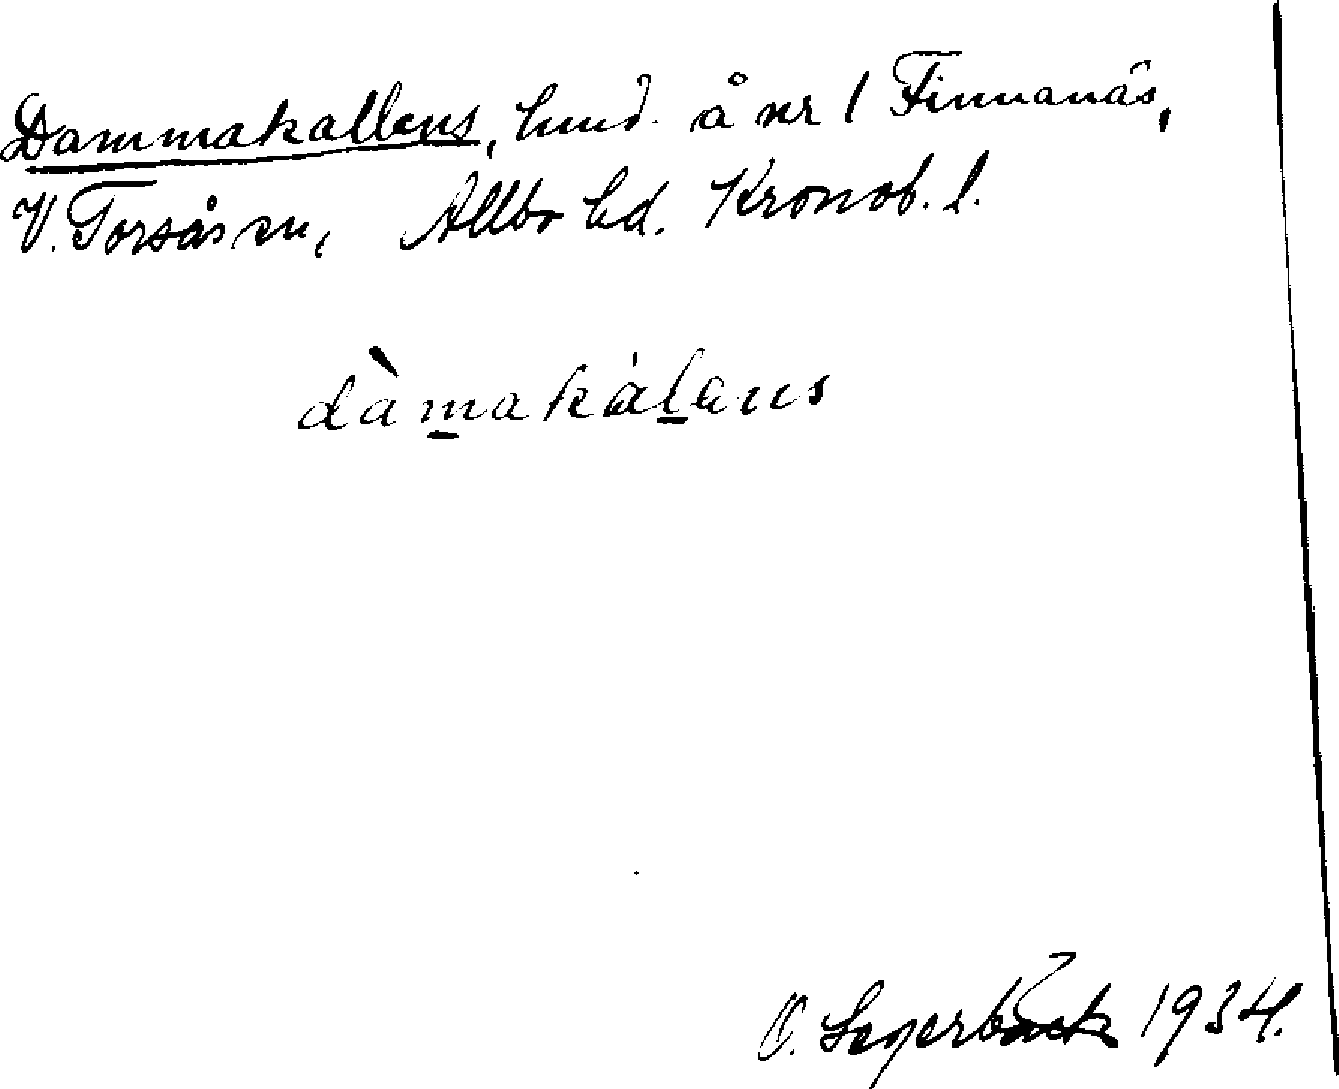 Dammakallens, lund å nr 1 Finnanäs,
V. Torsås sn, Allbo hd. Kronob. l.
dàmakálens
O. Segerbäck 1934.